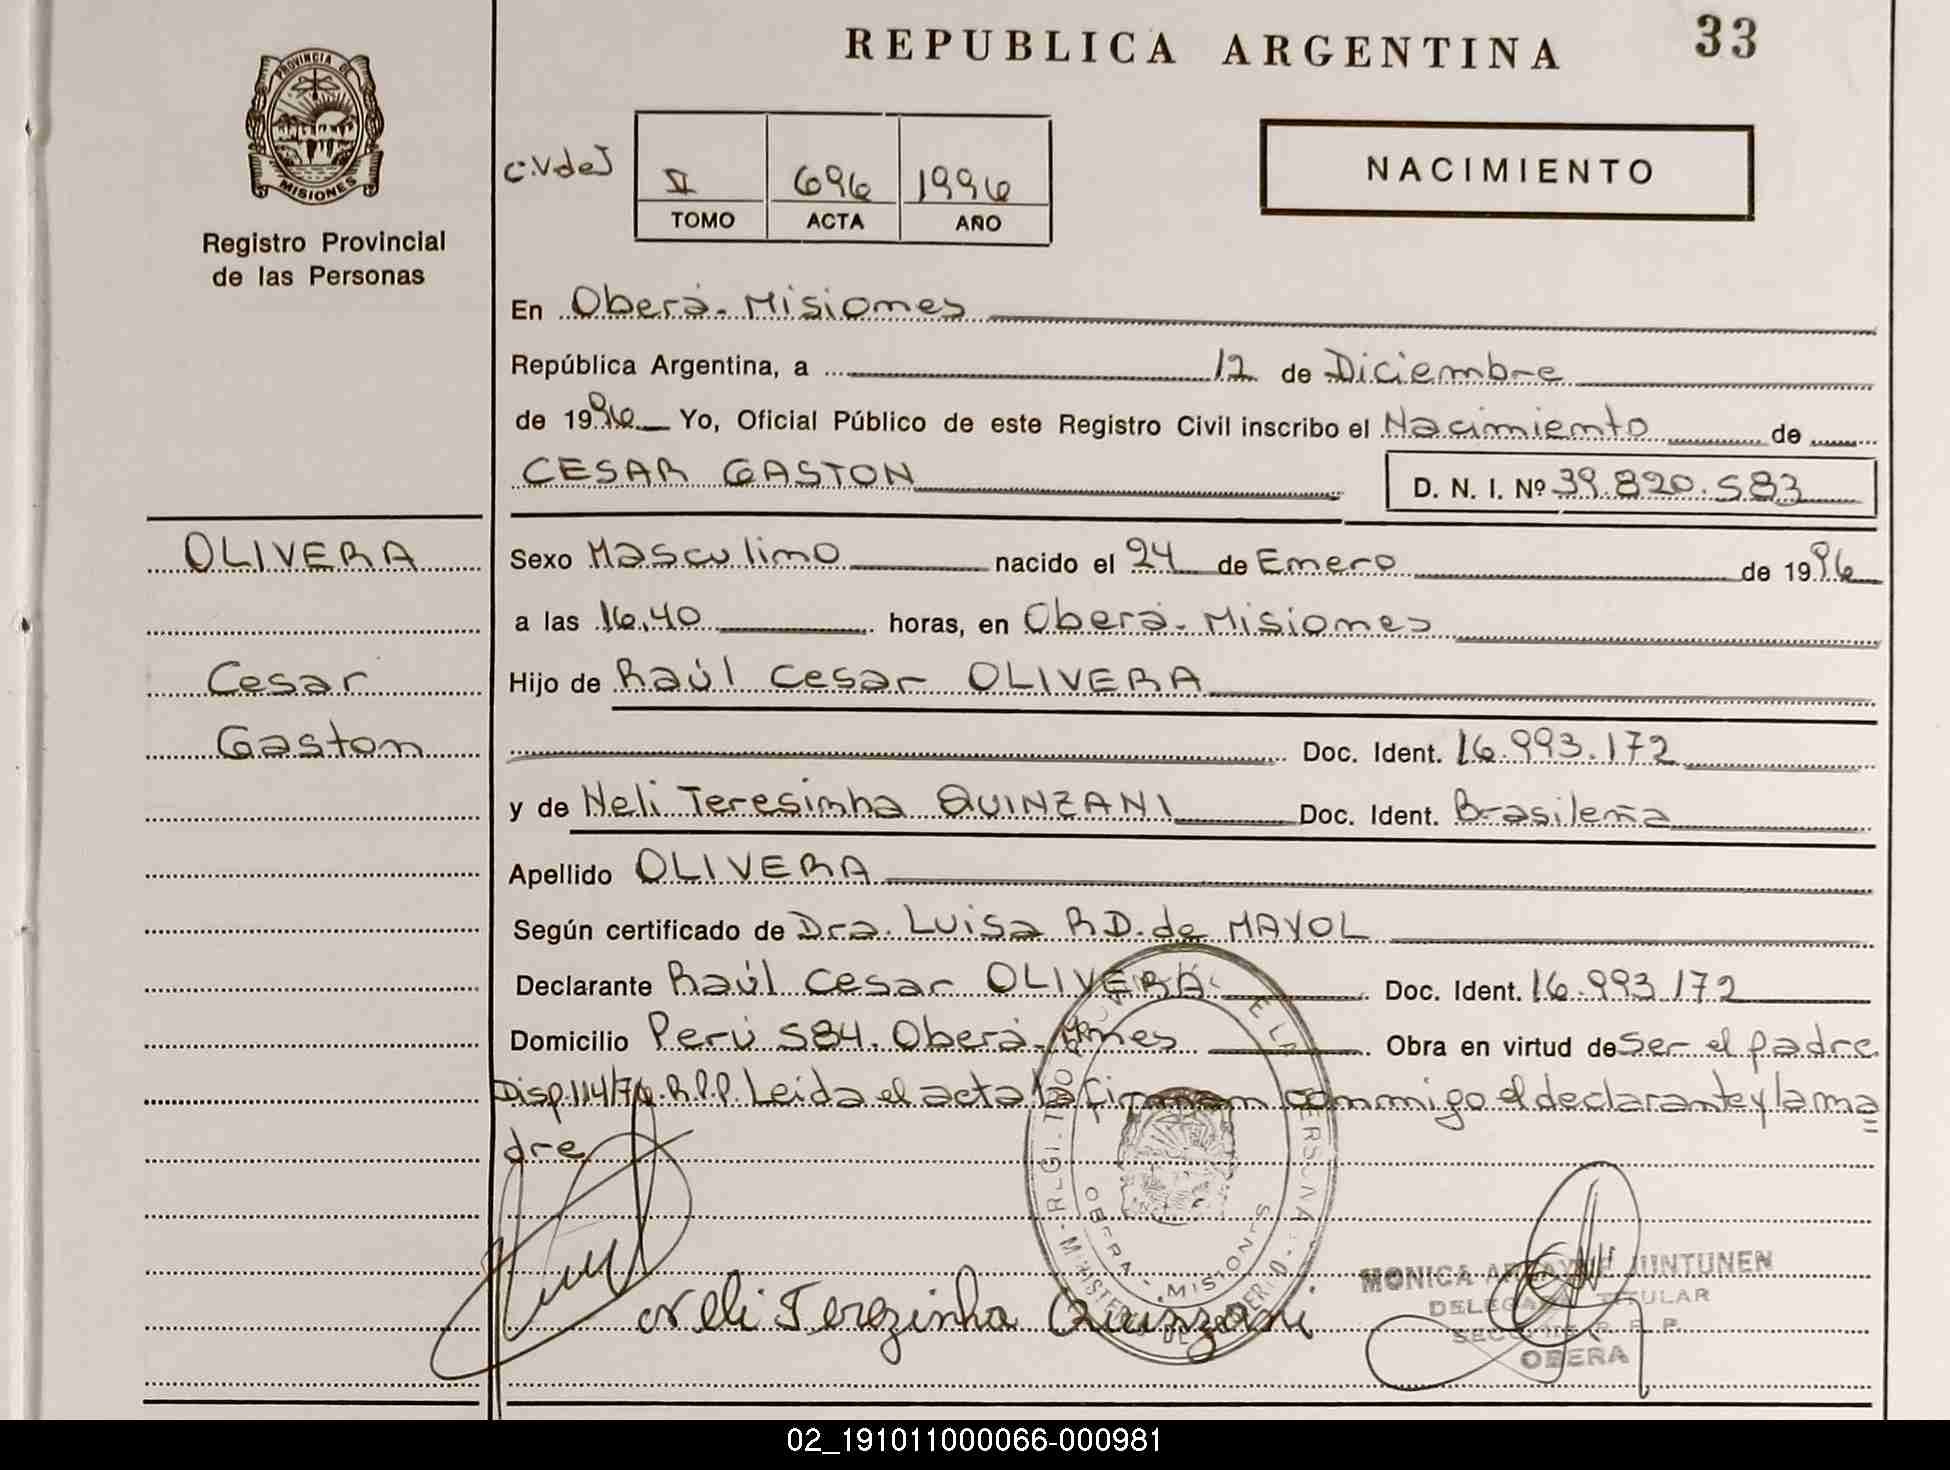 REPUBLICA ARGENTINA 33
PROVINCIA DE
MISIONES
Registro Provincial
de las Personas
C.VdeJ
696 1996
TOMO ACTA AÑO
NACIMIENTO
En Oberá-Misiones
República Argentina, a 12 de Diciembre
de 1996 Yo, Oficial Público de este Registro Civil inscribo el Nacimiento de
CESAR GASTON D. N. I. Nº 39.820.583
OLIVERA
Cesar
Gaston
Sexo Masculino nacido el 24 de Enero de 1996
a las 16.40 horas, en Oberá-Misiones
Hijo de Raúl Cesar OLIVERA
Doc. Ident. 16.993.172
y de Neli Teresinha QUINZANI Doc. Ident. Brasileña
Apellido OLIVERA
Según certificado de Dra. Luisa R.D. de MAYOL
Declarante Raúl Cesar OLIVERA Doc. Ident. 16.993.172
Domicilio Perú 584. Oberá-Mnes Obra en virtud de Ser el padre
Disp.114/76.R.P.P. Leida el acta la firman conmigo el declarante y la ma
dre
Neli Terezinha Quinzani
MONICA JUNTUNEN
DELEGADA TITULAR
R. P. P.
OBERA
OBERA - MISIONES
02_191011000066-000981